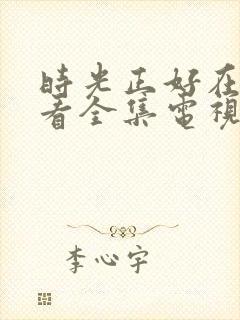 時光正好在
看全集電視
李心宇